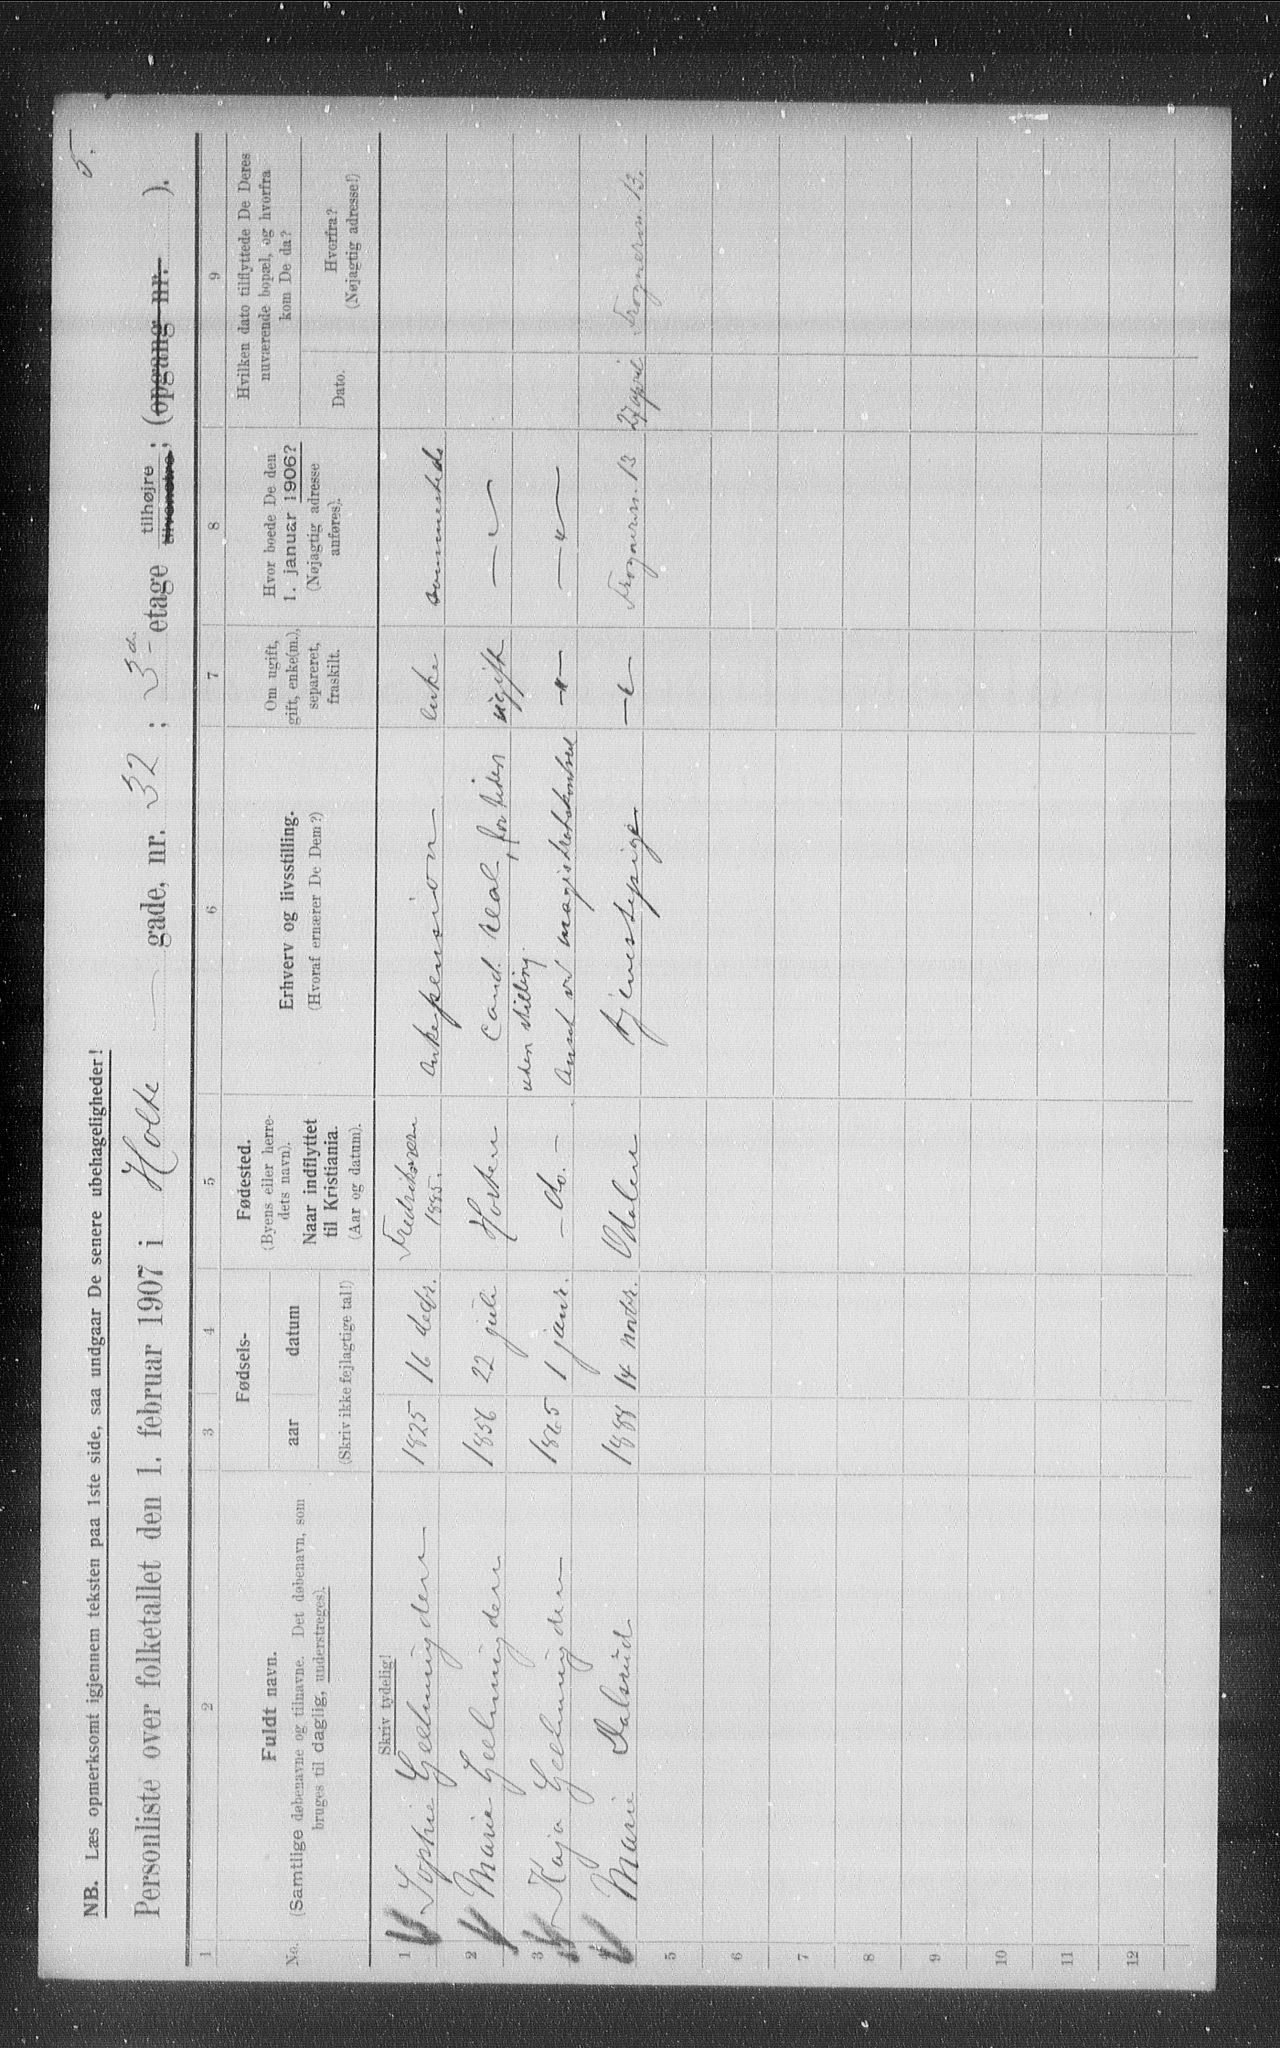 5.
NB. Læs opmerksomt igjennem teksten paa 1ste side, saa undgaar De senere ubehageligheder!
Personliste over folketallet den 1. februar 1907 i Holte gade, nr. 32; 3d. etage tilhøjre; (opgang nr. ).
tilvenstre
1 2 3 4 5 6 7 8 9
No.
Fuldt navn.
(Samtlige døbenavne og tilnavne. Det døbenavn, som
bruges til daglig, understreges).
Fødsels-
aar datum
(Skriv ikke fejlagtige tal!)
Fødested.
(Byens eller herre-
dets navn).
Naar indflyttet
til Kristiania.
(Aar og datum).
Erhverv og livsstilling.
(Hvoraf ernærer De Dem?)
Om ugift,
gift, enke(m.),
separeret,
fraskilt.
Hvor boede De den
1. januar 1906?
(Nøjagtig adresse
anføres).
Hvilken dato tilflyttede De Deres
nuværende bopæl, og hvorfra
kom De da?
Dato.
Hvorfra?
(Nøjagtig adresse!)
Skriv tydelig!
1 Sophie Geelmuyden 1825 16 decbr. Fredriksværn 1885. Enkepension Enke sammesteds
2 Marie Geelmuyden 1856 22 juli Horten Cand. real, for tiden uden stilling. ugift — " —
3 Kaja Geelmuyden 1865 1 janr. — do. — Ansat ved magistratskontoret — " — — " —
4 Marie Dalsrud 1888 14 novbr. Odalen tjenestepige — " — Frognerv. 13 27 april Frognerv. 13.
5
6
7
8
9
10
11
12